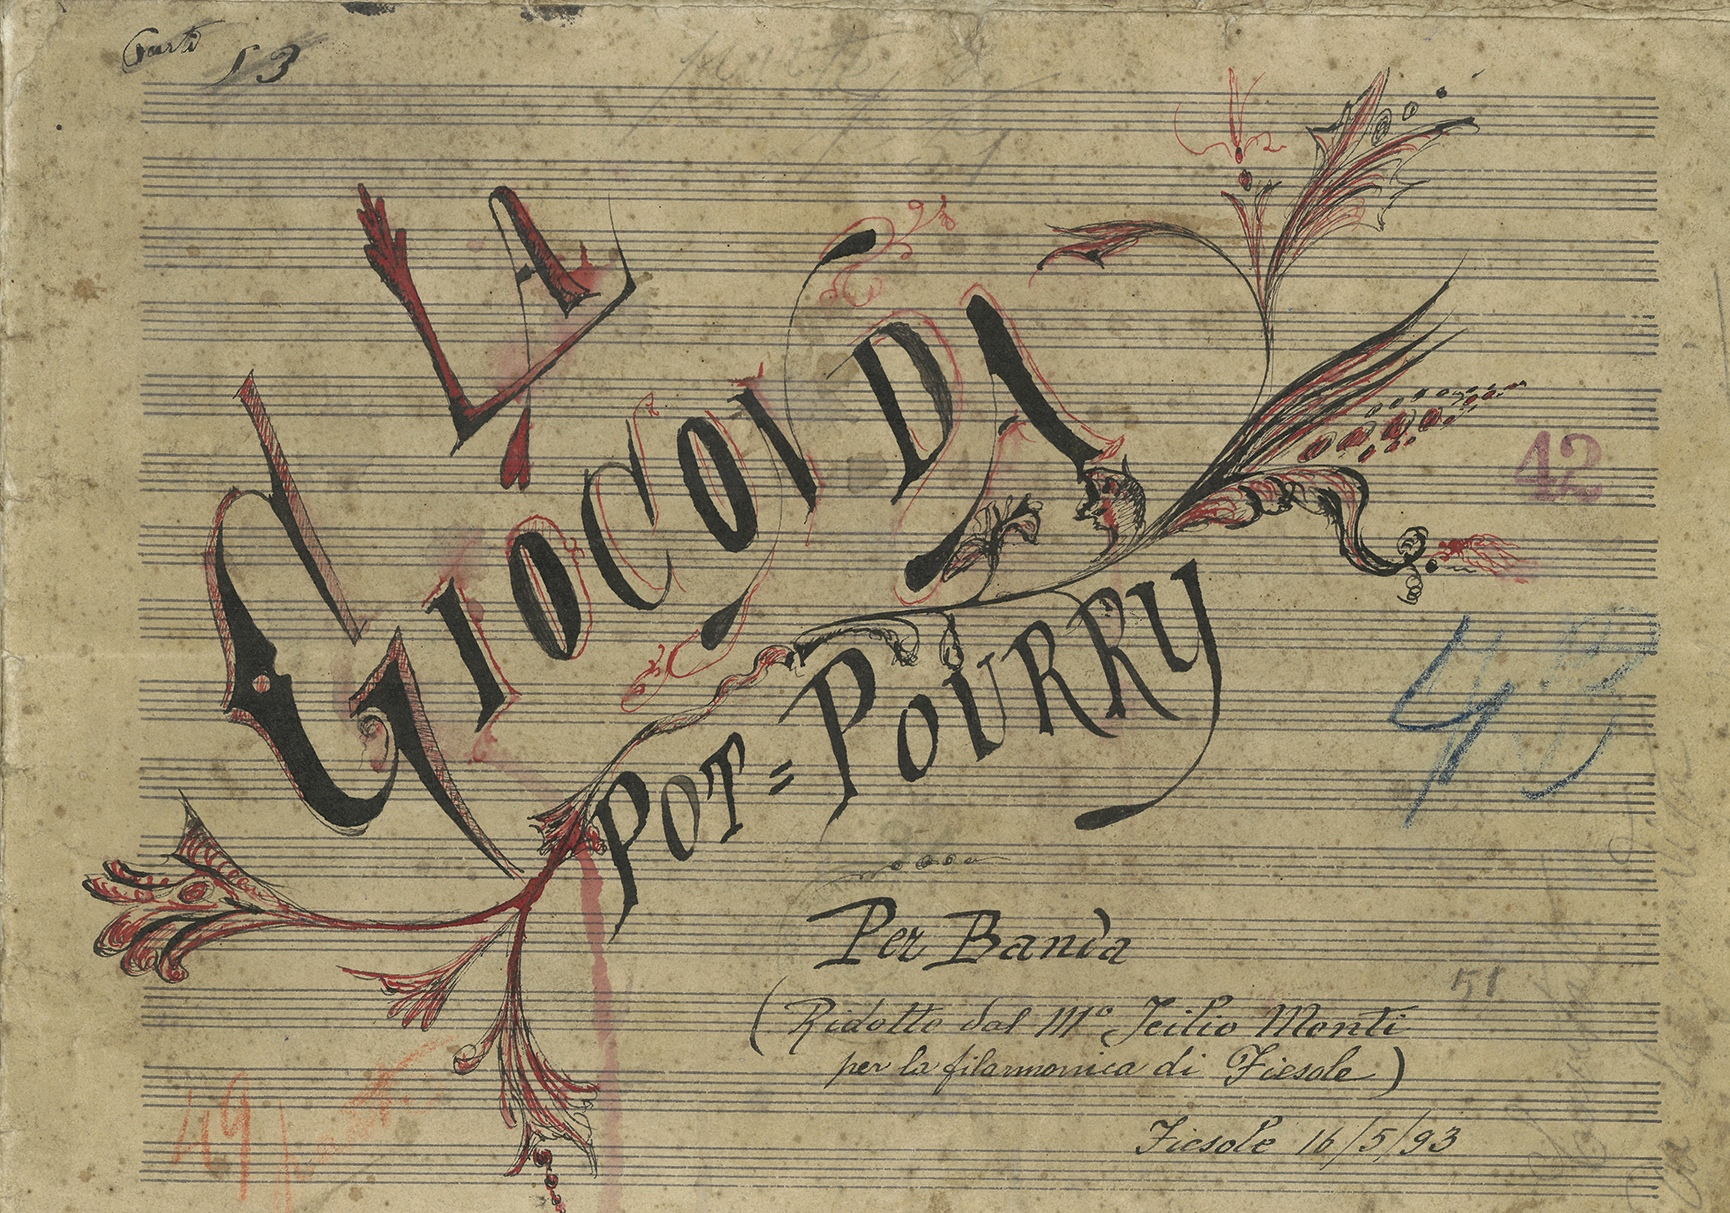 Parti 53
LA
GIOCONDA
POT=POURRY
Per Banda
(Ridotto dal Mº Icilio Monti
per la filarmonica di Fiesole)
Fiesole 16/5/93
42
51
49